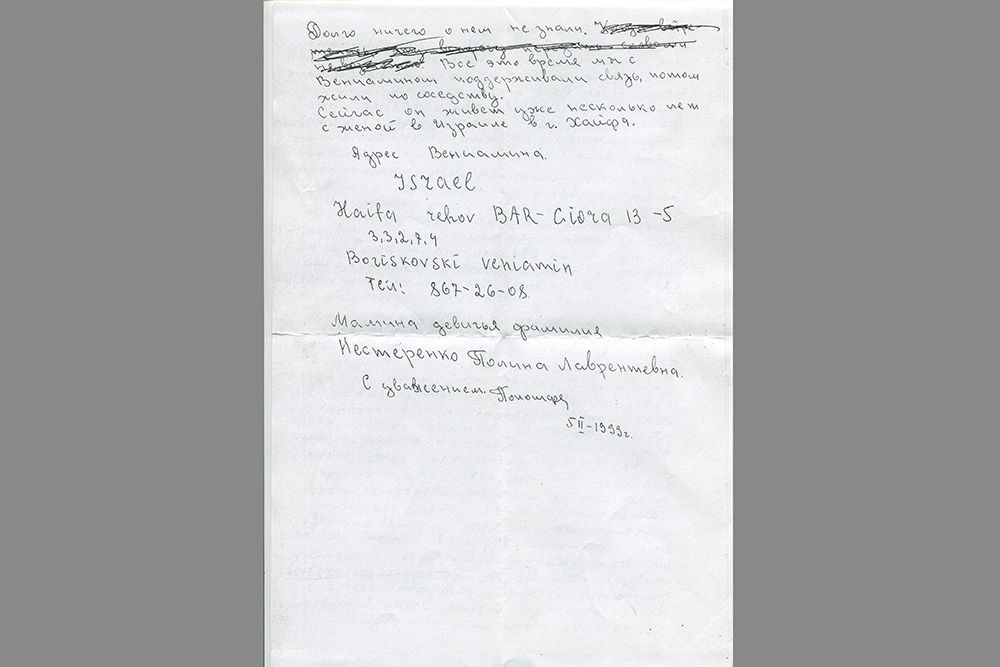 Долго ничего о нем не знали.
Все это время мы с
Вениамином поддерживали связь, потом
жили по соседству.
Сейчас он живет уже несколько лет
с женой в Израиле в г. Хайфа.
Адрес Вениамина.
Israel
Haifa rehov BAR-Giora 13-5
3,3,2,7,4
Boriskovski veniamin
Тел: 867-26-08.
Мамина девичья фамилия
Нестеренко Полина Лаврентевна.
С уважением.
5 II-1999г.